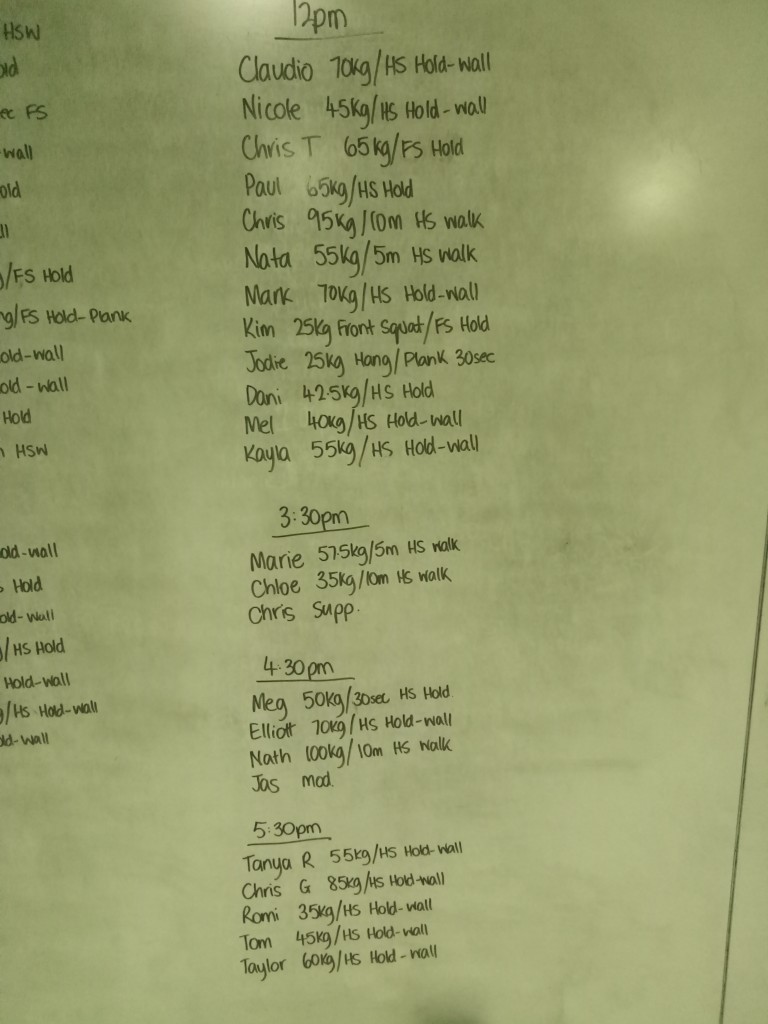 HSW
old
ec FS
wall
old
ll
/FS Hold
ng/FS Hold-Plank
old-wall
old-wall
Hold
HSW
old-wall
Hold
old-wall
/HS Hold
Hold-wall
g/HS Hold-wall
old-wall
12pm
Claudio 70kg/HS Hold-wall
Nicole 45kg/HS Hold-wall
Chris T 65kg/FS Hold
Paul 65kg/HS Hold
Chris 95kg/10m HS walk
Nata 55kg/5m HS walk
Mark 70kg/HS Hold-wall
Kim 25kg Front Squat/FS Hold
Jodie 25kg Hang/Plank 30sec
Dani 42.5kg/HS Hold
Mel 40kg/HS Hold-wall
Kayla 55kg/HS Hold-wall
3:30pm
Marie 57.5kg/5m HS walk
Chloe 35kg/10m HS walk
Chris Supp.
4:30pm
Meg 50kg/30sec HS Hold
Elliott 70kg/HS Hold-wall
Nath 100kg/10m HS walk
Jas mod.
5:30pm
Tanya R 55kg/HS Hold-wall
Chris G 85kg/HS Hold-wall
Romi 35kg/HS Hold-wall
Tom 45kg/HS Hold-wall
Taylor 60kg/HS Hold-wall